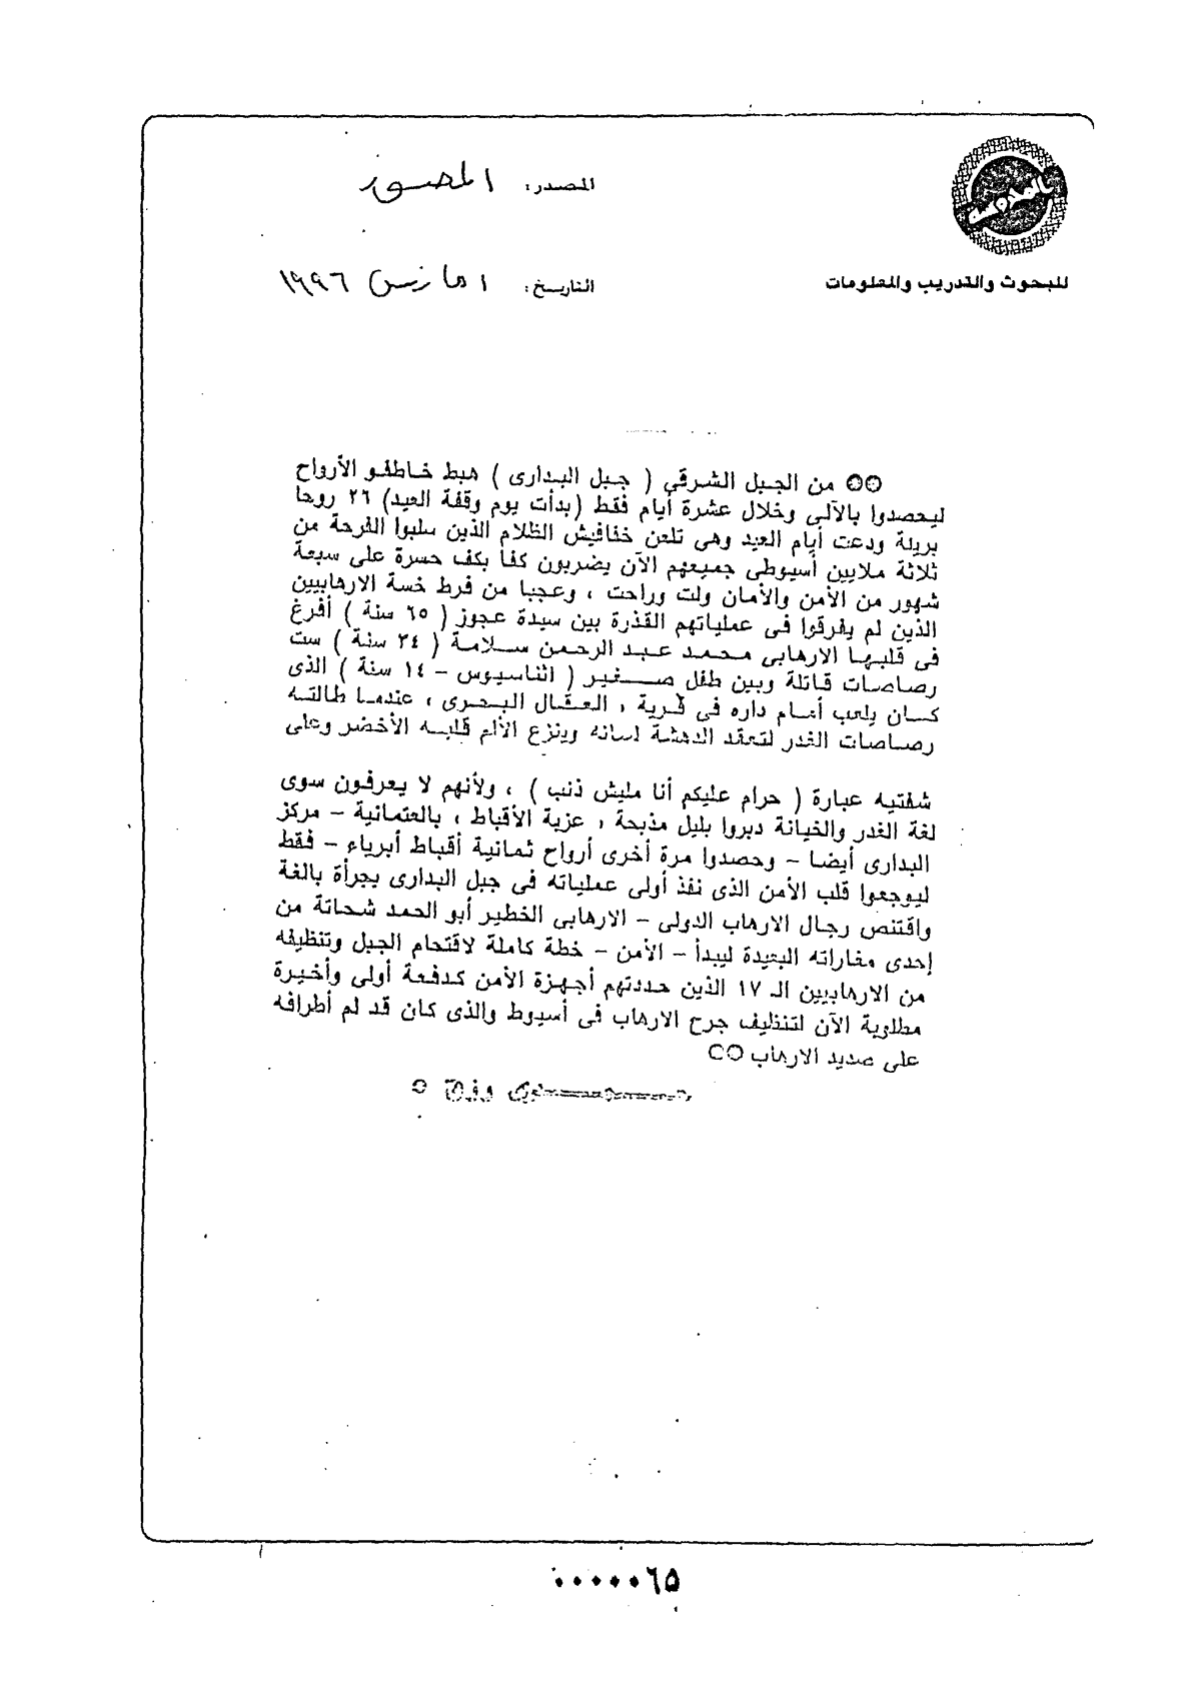 المصدر: المصور
التاريخ: ١ مارس ١٩٩٦
للبحوث والتدريب والمعلومات
من الجبل الشرقى ( جبل البدارى ) هبط خاطفو الأرواح
ليحصدوا بالآلى وخلال عشرة أيام فقط (بدأت يوم وقفة العيد) ٢٦ روحا
بريئة ودعت أيام العيد وهى تلعن خفافيش الظلام الذين سلبوا الفرحة من
ثلاثة ملايين أسيوطى جميعهم الآن يضربون كفا بكف حسرة على سبعة
شهور من الأمن والأمان ولت وراحت ، وعجبا من فرط خسة الارهابيين
الذين لم يفرقوا فى عملياتهم القذرة بين سيدة عجوز ( ٦٥ سنة ) أفرغ
فى قلبها الارهابى محمد عبد الرحمن سلامة ( ٢٤ سنة ) ست
رصاصات قاتلة وبين طفل صغير ( اثناسيوس - ١٤ سنة ) الذى
كان يلعب أمام داره فى قرية ، العقال البحرى ، عندما طالته
رصاصات الغدر لتعقد الدهشة لسانه وينزع الألم قلبه الأخضر وعلى
شفتيه عبارة ( حرام عليكم أنا مليش ذنب ) ، ولأنهم لا يعرفون سوى
لغة الغدر والخيانة دبروا بليل مذبحة ، عزبة الأقباط ، بالعتمانية - مركز
البدارى أيضا - وحصدوا مرة أخرى أرواح ثمانية أقباط أبرياء - فقط
ليوجعوا قلب الأمن الذى نفذ أولى عملياته فى جبل البدارى بجرأة بالغة
واقتنص رجال الارهاب الدولى - الارهابى الخطير أبو الحمد شحاتة من
إحدى مغاراته البعيدة ليبدأ - الأمن - خطة كاملة لاقتحام الجبل وتنظيفه
من الارهابيين الـ ١٧ الذين حددتهم أجهزة الأمن كدفعة أولى وأخيرة
مطلوبة الآن لتنظيف جرح الارهاب فى أسيوط والذى كان قد لم أطرافه
على صديد الارهاب
٠٠٠٠٠٦٥